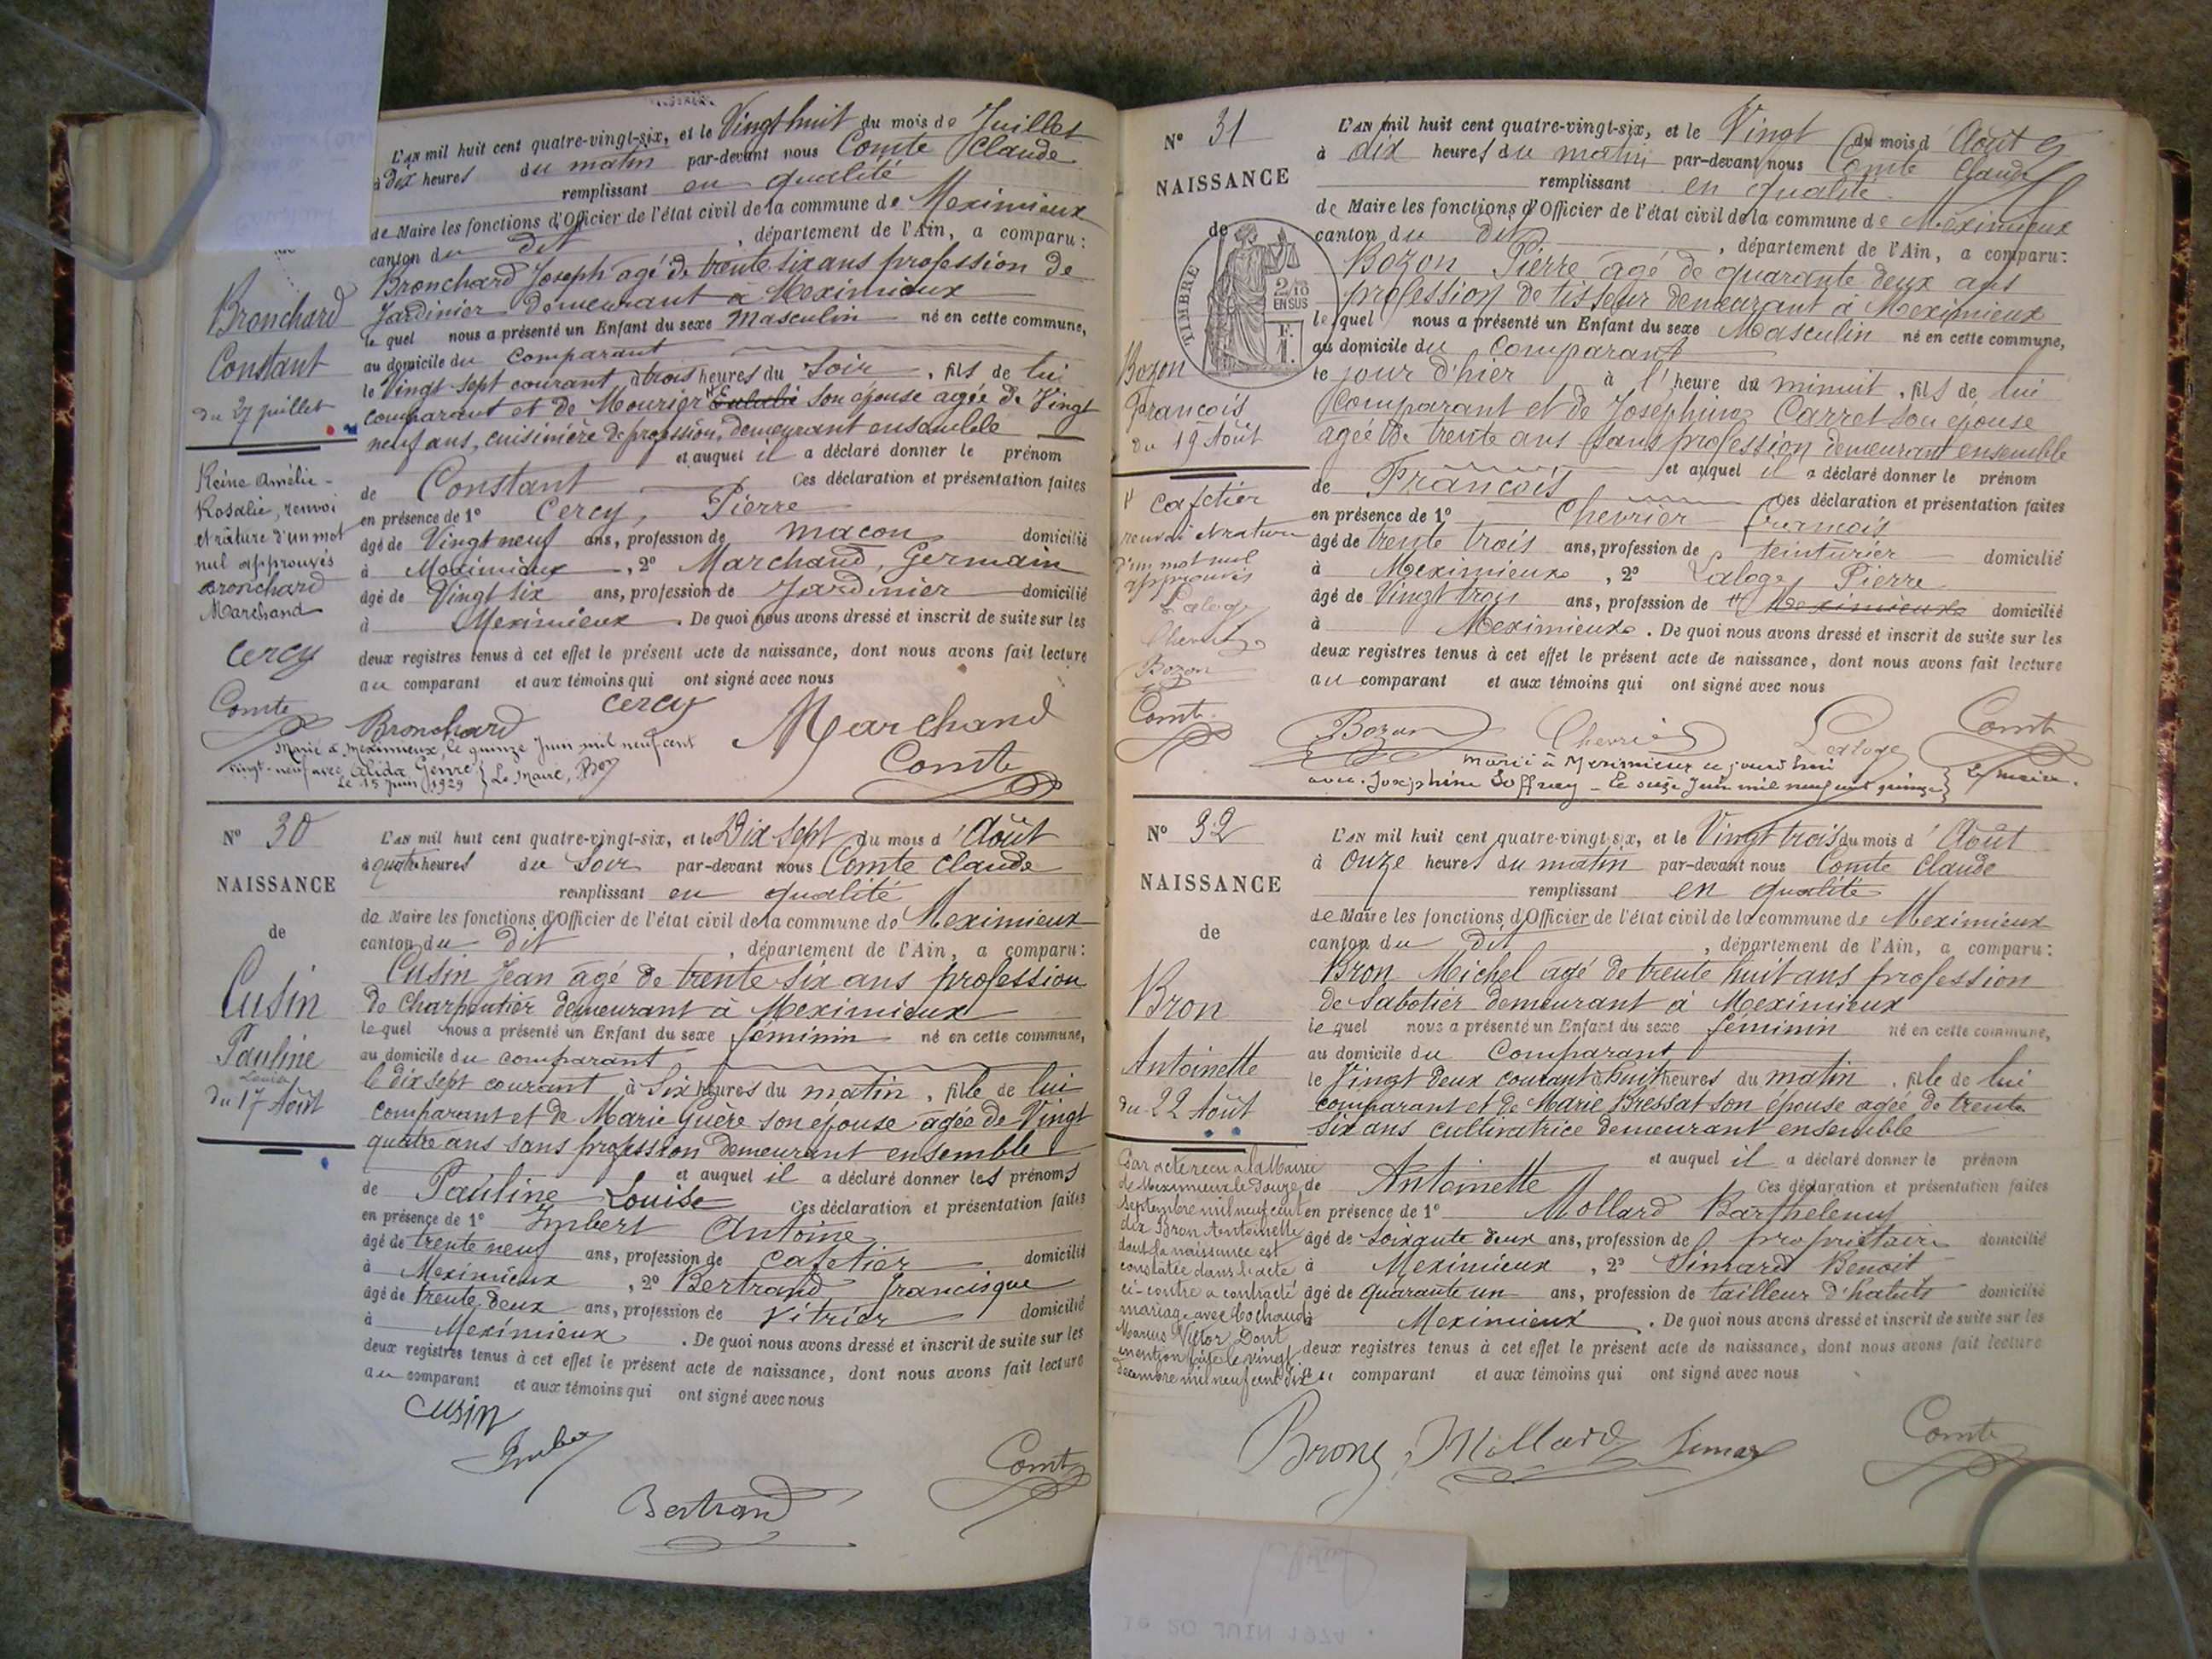 L'an mil huit cent quatre-vingt-six, et le Vingt huit du mois de Juillet
à dix heures du matin par-devant nous Comte Claude
remplissant en qualité
de Maire les fonctions d'Officier de l'état civil de la commune de Meximieux
canton du dit, département de l'Ain, a comparu:
Bronchard Joseph agé de trente six ans profession de
Jardinier demeurant à Meximieux
le quel nous a présenté un Enfant du sexe Masculin né en cette commune,
au domicile du comparant
le Vingt sept courant à trois heures du Soir, fils de lui
comparant et de Mourier son épouse agée de Vingt
neuf ans, cuisinière de profession, demeurant ensemble
et auquel il a déclaré donner le prénom
de Constant Ces déclaration et présentation faites
en présence de 1° Cercy, Pierre
âgé de Vingt neuf ans, profession de macon domicilié
à Meximieux, 2° Marchand, Germain
âgé de Vingt six ans, profession de Jardinier domicilié
à Meximieux. De quoi nous avons dressé et inscrit de suite sur les
deux registres tenus à cet effet le présent acte de naissance, dont nous avons fait lecture
au comparant et aux témoins qui ont signé avec nous
Bronchard
Cercy
Marchand
Comte
Marié à Meximieux, le quinze Juin mil neuf cent
vingt-neuf avec Alida Genre
Le 15 Juin 1929 Le Maire,
Bronchard
Constant
du 27 juillet
Reine Amélie-
Rosalie, renvoi
et râture d'un mot
nul approuvés
Bronchard
Marchand
Cercy
Comte
N° 30
NAISSANCE
de
Cusin
Pauline
Louise
du 17 Août
L'an mil huit cent quatre-vingt-six, et le Dix sept du mois d'Août
à quatre heures du Soir par-devant nous Comte Claude
remplissant en qualité
de Maire les fonctions d'Officier de l'état civil de la commune de Meximieux
canton du dit, département de l'Ain, a comparu:
Cusin Jean agé de trente six ans profession
de Charpentier demeurant à Meximieux
le quel nous a présenté un Enfant du sexe féminin né en cette commune,
au domicile du comparant
le dix sept courant à Six heures du matin, fille de lui
comparant et de Marie Guère son épouse agée de Vingt
quatre ans sans profession demeurant ensemble
et auquel il a déclaré donner les prénoms
de Pauline Louise Ces déclaration et présentation faites
en présence de 1° Imbert Antoine
âgé de trente neuf ans, profession de Cafetier domicilié
à Meximieux, 2° Bertrand francisque
âgé de trente deux ans, profession de Vitrier domicilié
à Meximieux. De quoi nous avons dressé et inscrit de suite sur les
deux registres tenus à cet effet le présent acte de naissance, dont nous avons fait lecture
au comparant et aux témoins qui ont signé avec nous
Cusin
Bertrand
Comte
N° 31
NAISSANCE
de
TIMBRE
2/10
EN SUS
F.
1.
Bozon
François
du 19 Août
cafetier
renvoi et rature
d'un mot nul
approuvés
Laloge
Bozon
Comte
L'an mil huit cent quatre-vingt-six, et le Vingt du mois d'Août
à dix heures du matin par-devant nous Comte Claude
remplissant en qualité
de Maire les fonctions d'Officier de l'état civil de la commune de Meximieux
canton du dit, département de l'Ain, a comparu:
Bozon Pierre agé de quarante deux ans
profession de tisseur demeurant à Meximieux
le quel nous a présenté un Enfant du sexe Masculin né en cette commune,
au domicile du comparant
le jour d'hier à l'heure du minuit, fils de lui
comparant et de Josephine Carret son épouse
agée de trente ans sans profession demeurant ensemble
et auquel il a déclaré donner le prénom
de François Ces déclaration et présentation faites
en présence de 1° Chevrier françois
âgé de trente trois ans, profession de teinturier domicilié
à Meximieux, 2° Laloge Pierre
âgé de Vingt trois ans, profession de Meximieux domicilié
à Meximieux. De quoi nous avons dressé et inscrit de suite sur les
deux registres tenus à cet effet le présent acte de naissance, dont nous avons fait lecture
au comparant et aux témoins qui ont signé avec nous
Bozon
Chevrier
Laloge
Comte
Marié à Meximieux ce jourd'hui
avec Joséphine Soffray - Le seize Juin mil neuf cent quinze Le maire.
N° 32
NAISSANCE
de
Bron
Antoinette
du 22 Août
Par acte reçu à la Mairie
de Meximieux le Douze
Septembre mil neuf cent
dix Bron Antoinette
dont la naissance est
constatée dans l'acte
ci-contre a contracté
mariage avec Cochaud
Marius Victor Dont
mention faite le vingt
décembre mil neuf cent dix
L'an mil huit cent quatre-vingt-six, et le Vingt trois du mois d'Août
à onze heures du matin par-devant nous Comte Claude
remplissant en qualité
de Maire les fonctions d'Officier de l'état civil de la commune de Meximieux
canton du dit, département de l'Ain, a comparu:
Bron Michel agé de trente huit ans profession
de Sabotier demeurant à Meximieux
le quel nous a présenté un Enfant du sexe féminin né en cette commune,
au domicile du Comparant
le Vingt deux courant à huit heures du matin, fille de lui
comparant et de Marie Bressat son épouse agée de trente
six ans cultivatrice demeurant ensemble
et auquel il a déclaré donner le prénom
de Antoinette Ces déclaration et présentation faites
en présence de 1° Mollard Barthelemy
âgé de Soixante deux ans, profession de propriétaire domicilié
à Meximieux, 2° Simard Benoit
âgé de quarante un ans, profession de tailleur d'habits domicilié
à Meximieux. De quoi nous avons dressé et inscrit de suite sur les
deux registres tenus à cet effet le présent acte de naissance, dont nous avons fait lecture
au comparant et aux témoins qui ont signé avec nous
Bron
Mollard
Simard
Comte